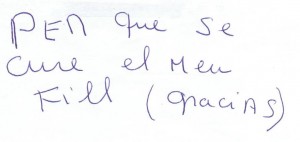 PER que se
cure el meu
Fill (gracias)